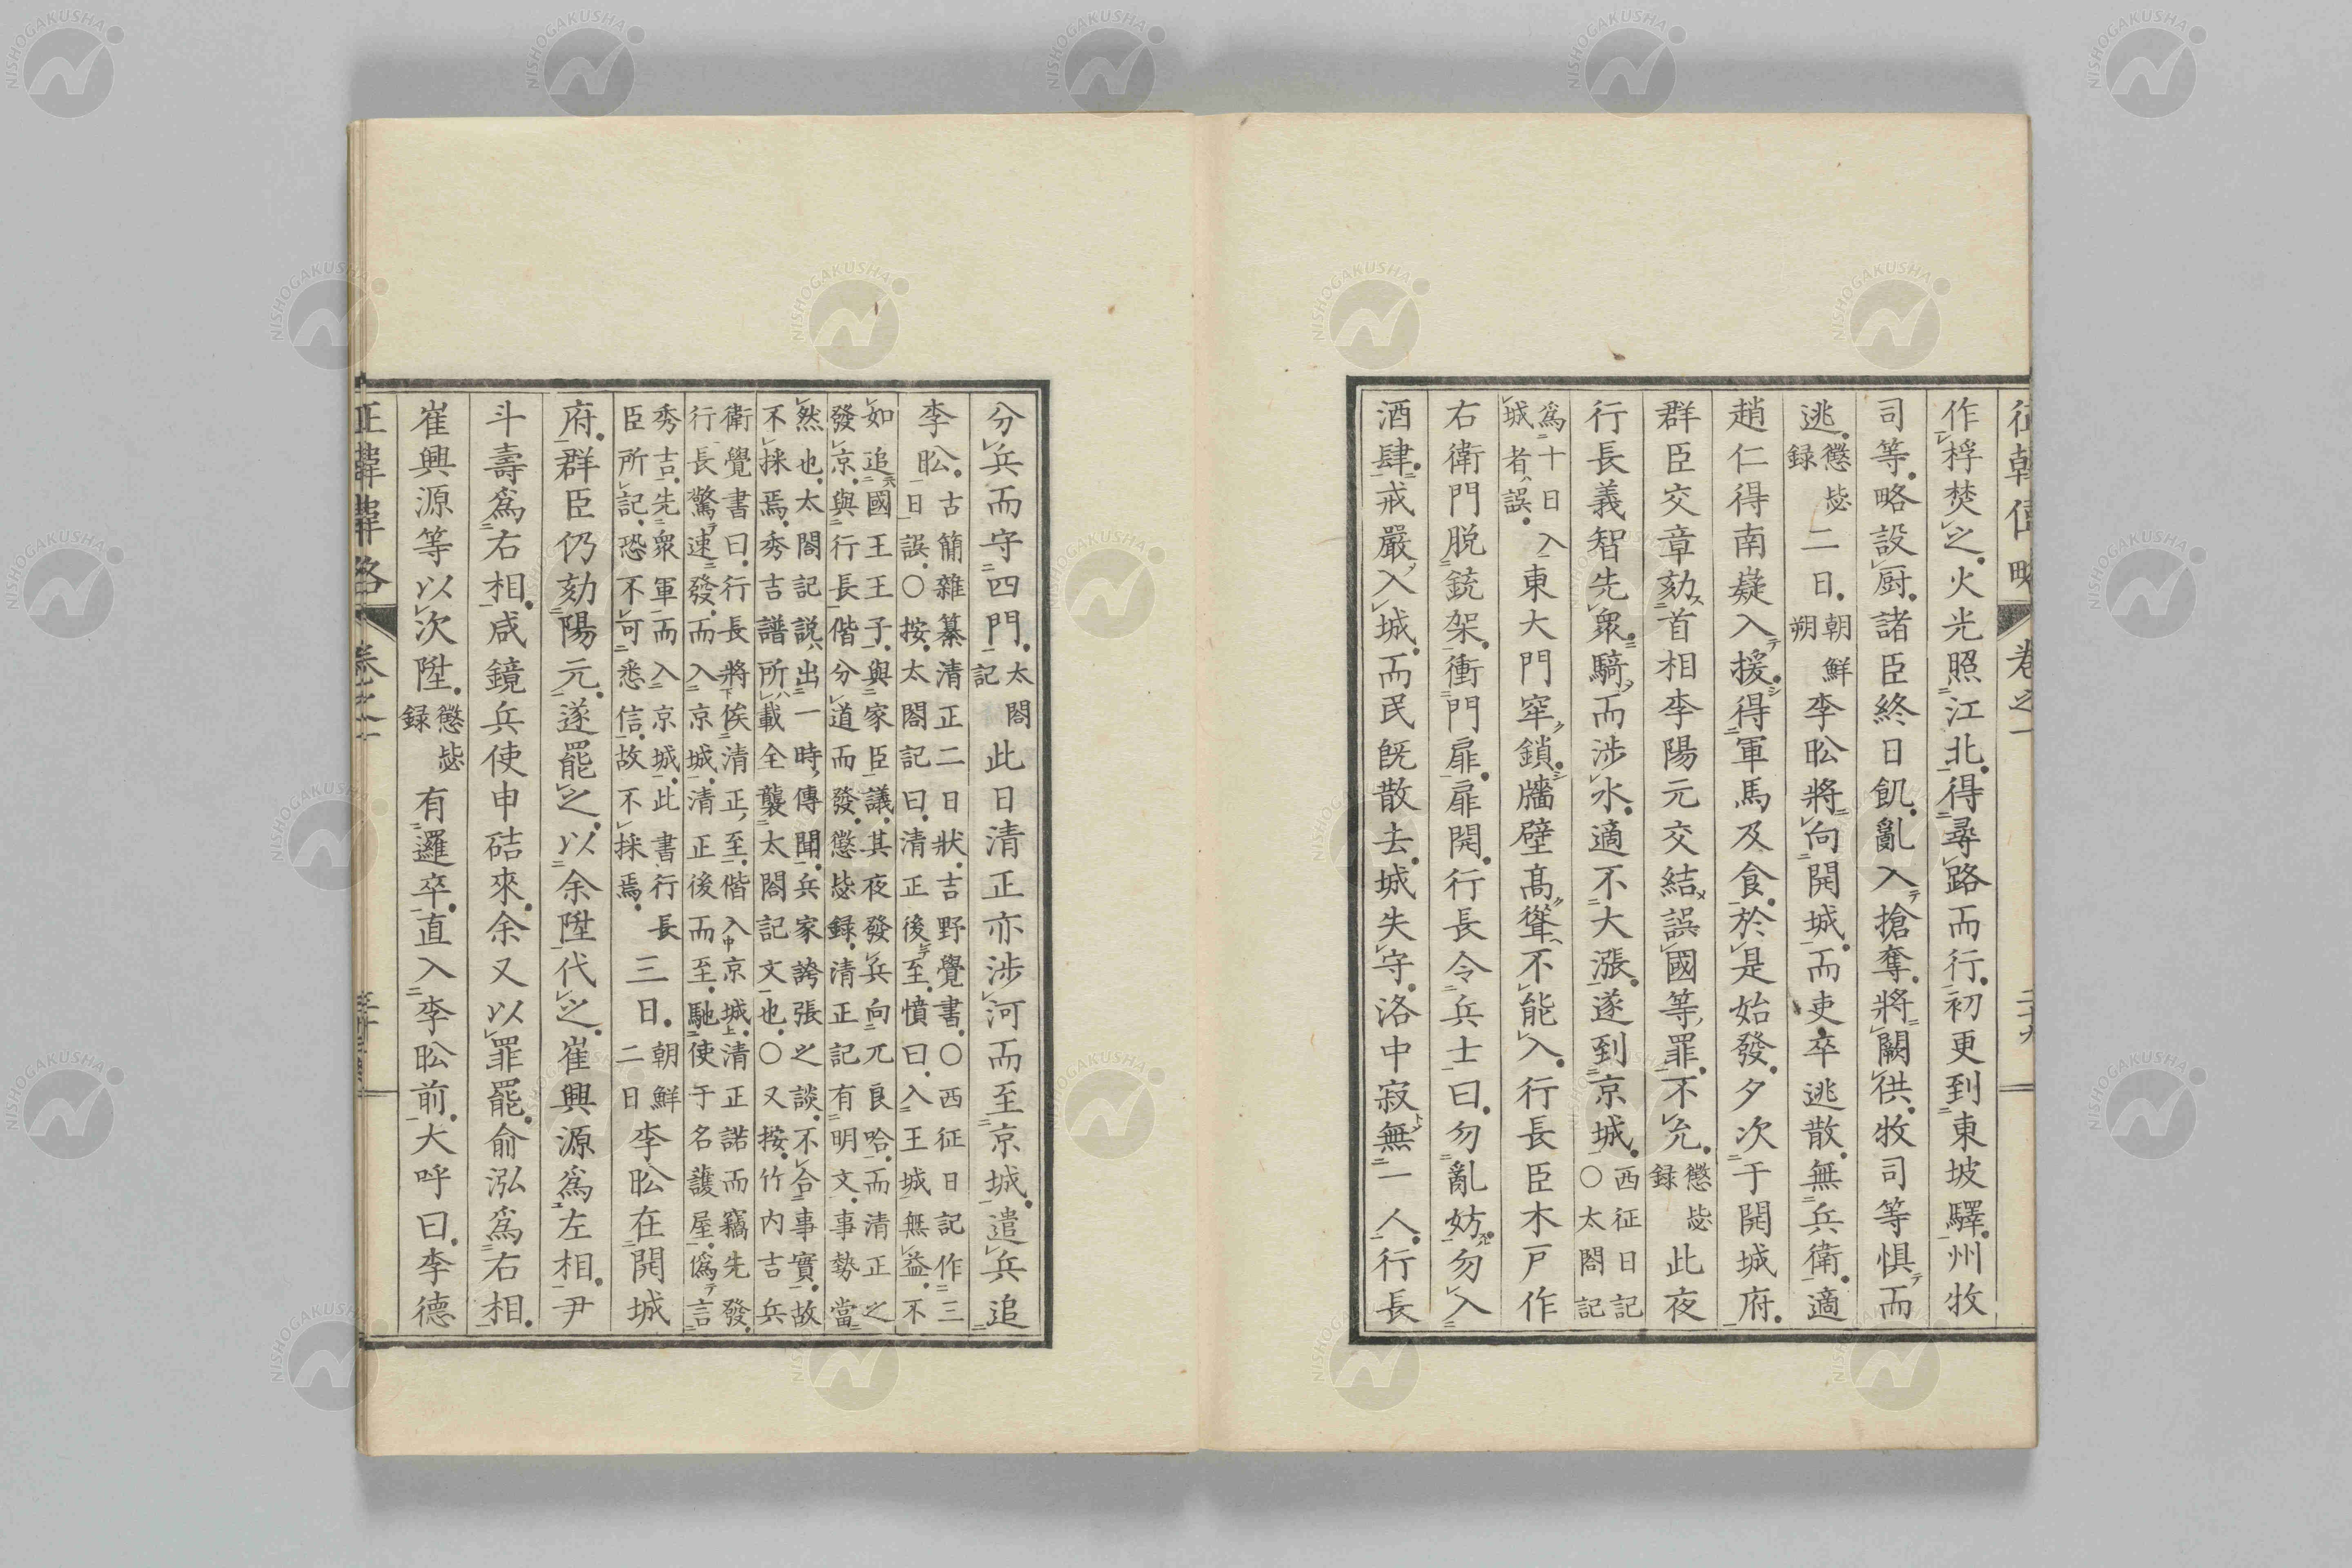 征韓偉略 卷之一 二十九
作桴焚之。火光照江北。得尋路而行。初更到東坡驛。州牧
司等。略設厨。諸臣終日飢。亂入搶奪。將闕供。牧司等惧而
逃。懲毖録二日。朝鮮朔李昖將向開城。而吏卒逃散。無兵衛。適
趙仁得南嶷入援。得軍馬及食。於是始發。夕次于開城府。
群臣交章劾首相李陽元交結誤國等罪。不允。懲毖録此夜
行長義智先衆騎而涉水。適不大漲。遂到京城。西征日記〇太閤記
爲十日入城者誤。東大門窂鎖。牆壁髙聳不能入。行長臣木戸作
右衛門脱銃架。衝門扉。扉開。行長令兵士曰。勿亂妨。勿入
酒肆。戒嚴入城。而民既散去。城失守。洛中寂無一人。行長
分兵而守四門。太閤記此日清正亦涉河而至京城。遣兵追
李昖。古簡雜纂清正二日狀。吉野覺書。〇西征日記作三日誤。〇按。太閤記曰。清正後至。憤曰。入王城無益。不
如追國王王子。與家臣議。其夜發兵向兀良哈。而清正之發京。與行長偕分道而發。懲毖録。清正記有明文。事勢當
然也。太閤記説出一時傳聞。兵家誇張之談。不合事實。故不採焉。秀吉譜所載全襲太閤記文也。〇又按。竹内吉兵
衛覺書曰。行長將俟清正至。偕入京城。清正諾而竊先發。行長驚速發。而入京城。清正後而至。馳使于名護屋。僞言
秀吉。先衆軍而入京城。此書行長臣所記。恐不可悉信。故不採焉。三日。朝鮮二日李昖在開城
府。群臣仍劾陽元。遂罷之。以余陞代之。崔興源爲左相。尹
斗壽爲右相。咸鏡兵使申硈來。余又以罪罷。俞泓爲右相。
崔興源等以次陞。懲毖録有邏卒。直入李昖前。大呼曰。李德